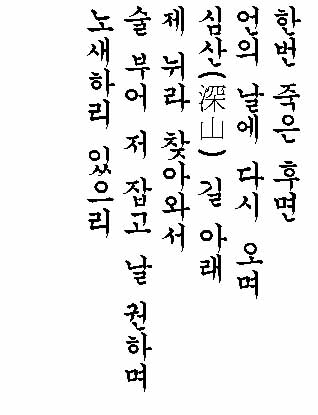 한번 죽은 후면
언의 날에 다시 오며
심산(深山) 길 아래
제 뉘라 찾아와서
술 부어 저 잡고 날 권하며
노새하리 있으리